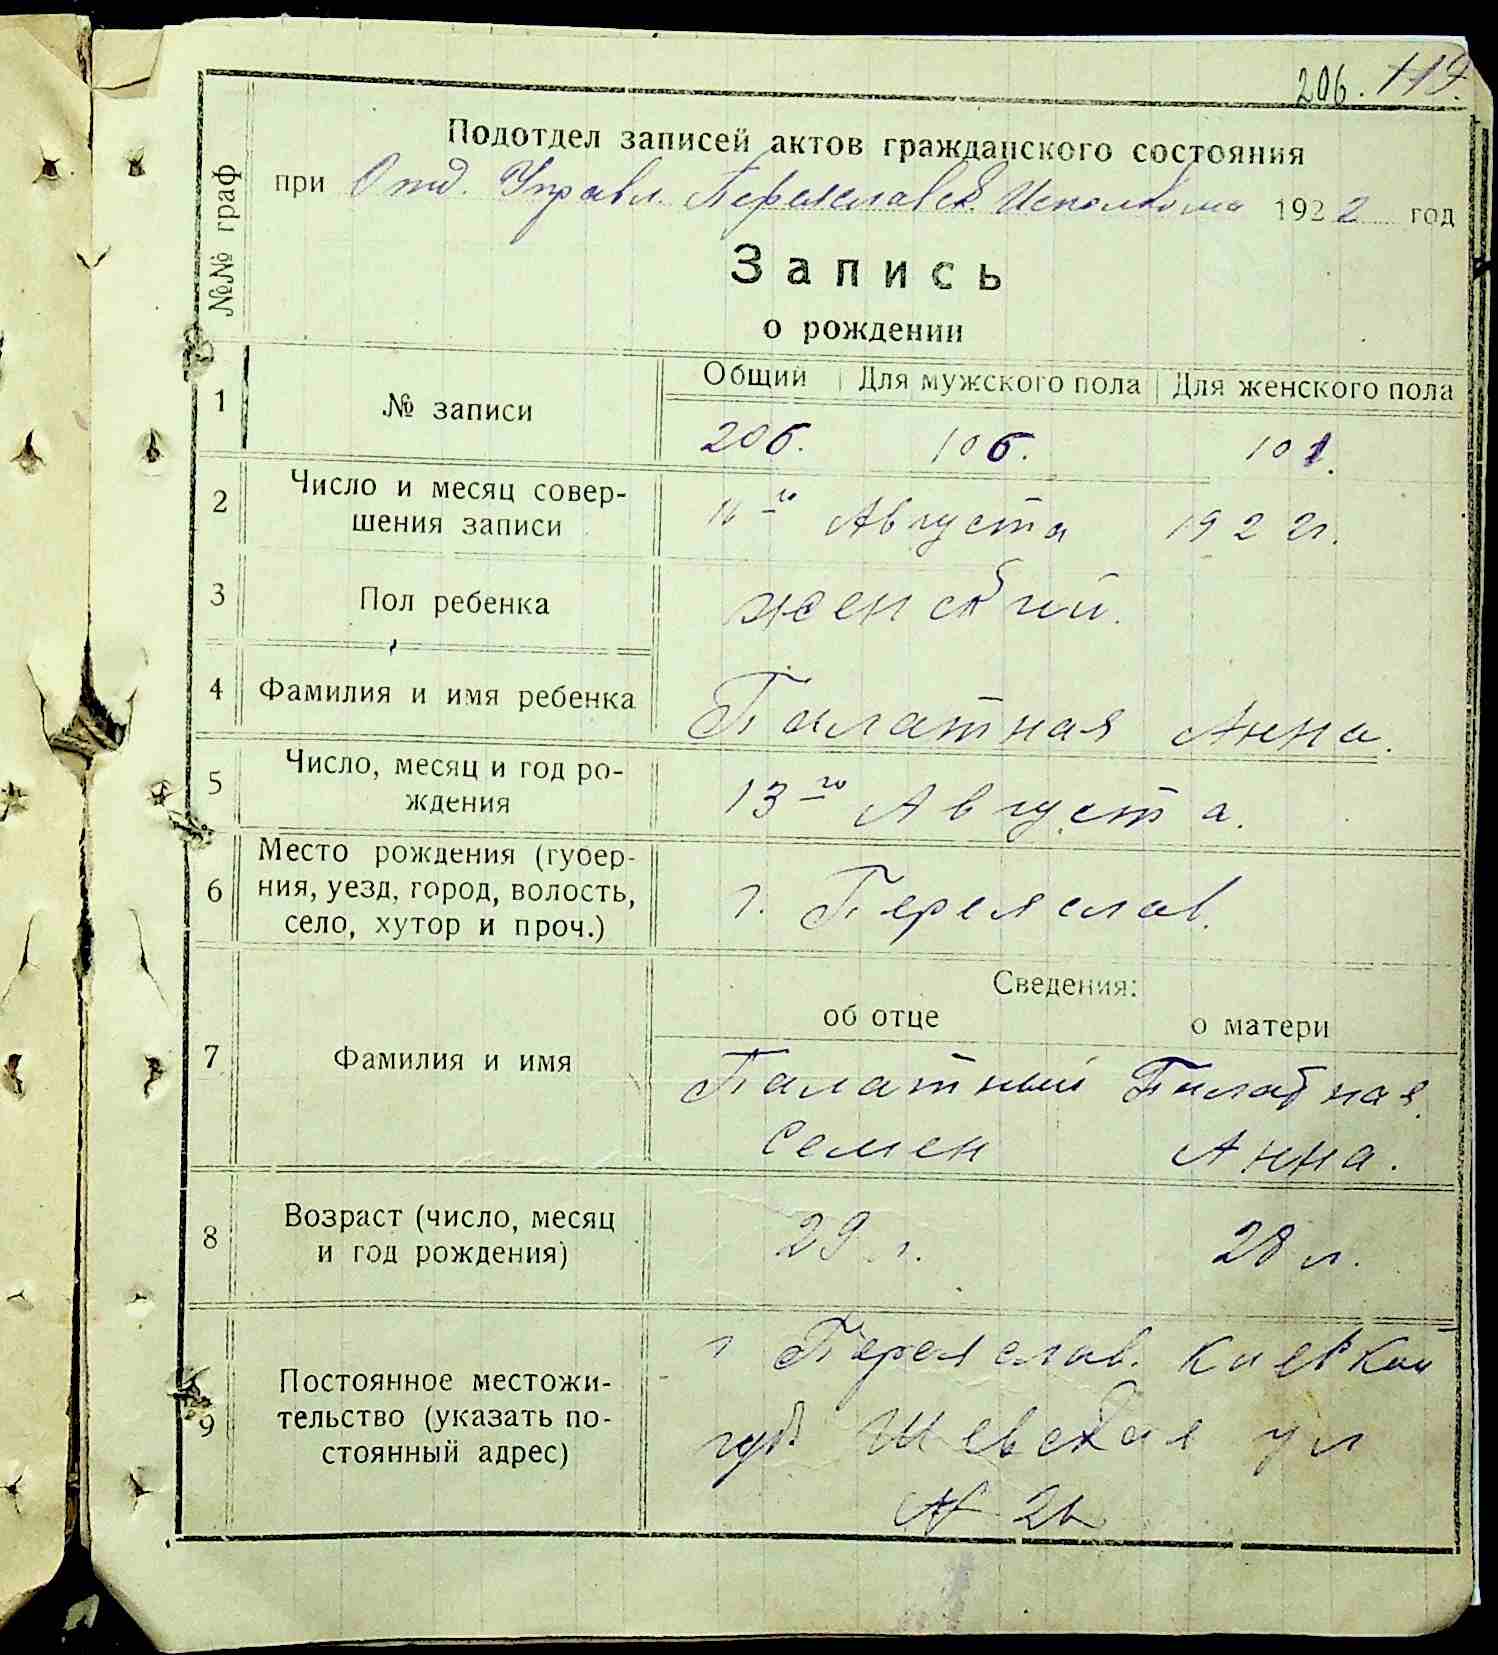 206. 119.
Подотдел записей актов гражданского состояния
при Отд. Управл. Переяславск. Исполкома 1922 год
№№ граф
Запись
о рождении
1 № записи
Общий Для мужского пола Для женского пола
206. 106. 101.
2 Число и месяц совер-
шения записи
Августа 1922г.
3 Пол ребенка
женский.
4 Фамилия и имя ребенка
Палатная Анна.
5 Число, месяц и год ро-
ждения
13го Августа.
6 Место рождения (губер-
ния, уезд, город, волость,
село, хутор и проч.)
г. Переяслав.
Сведения:
об отце о матери
7 Фамилия и имя
Палатный Палатная
Семен Анна.
8 Возраст (число, месяц
и год рождения)
29 л. 28 л.
9 Постоянное местожи-
тельство (указать по-
стоянный адрес)
г Переяслав. Киевской
губ. ул
№